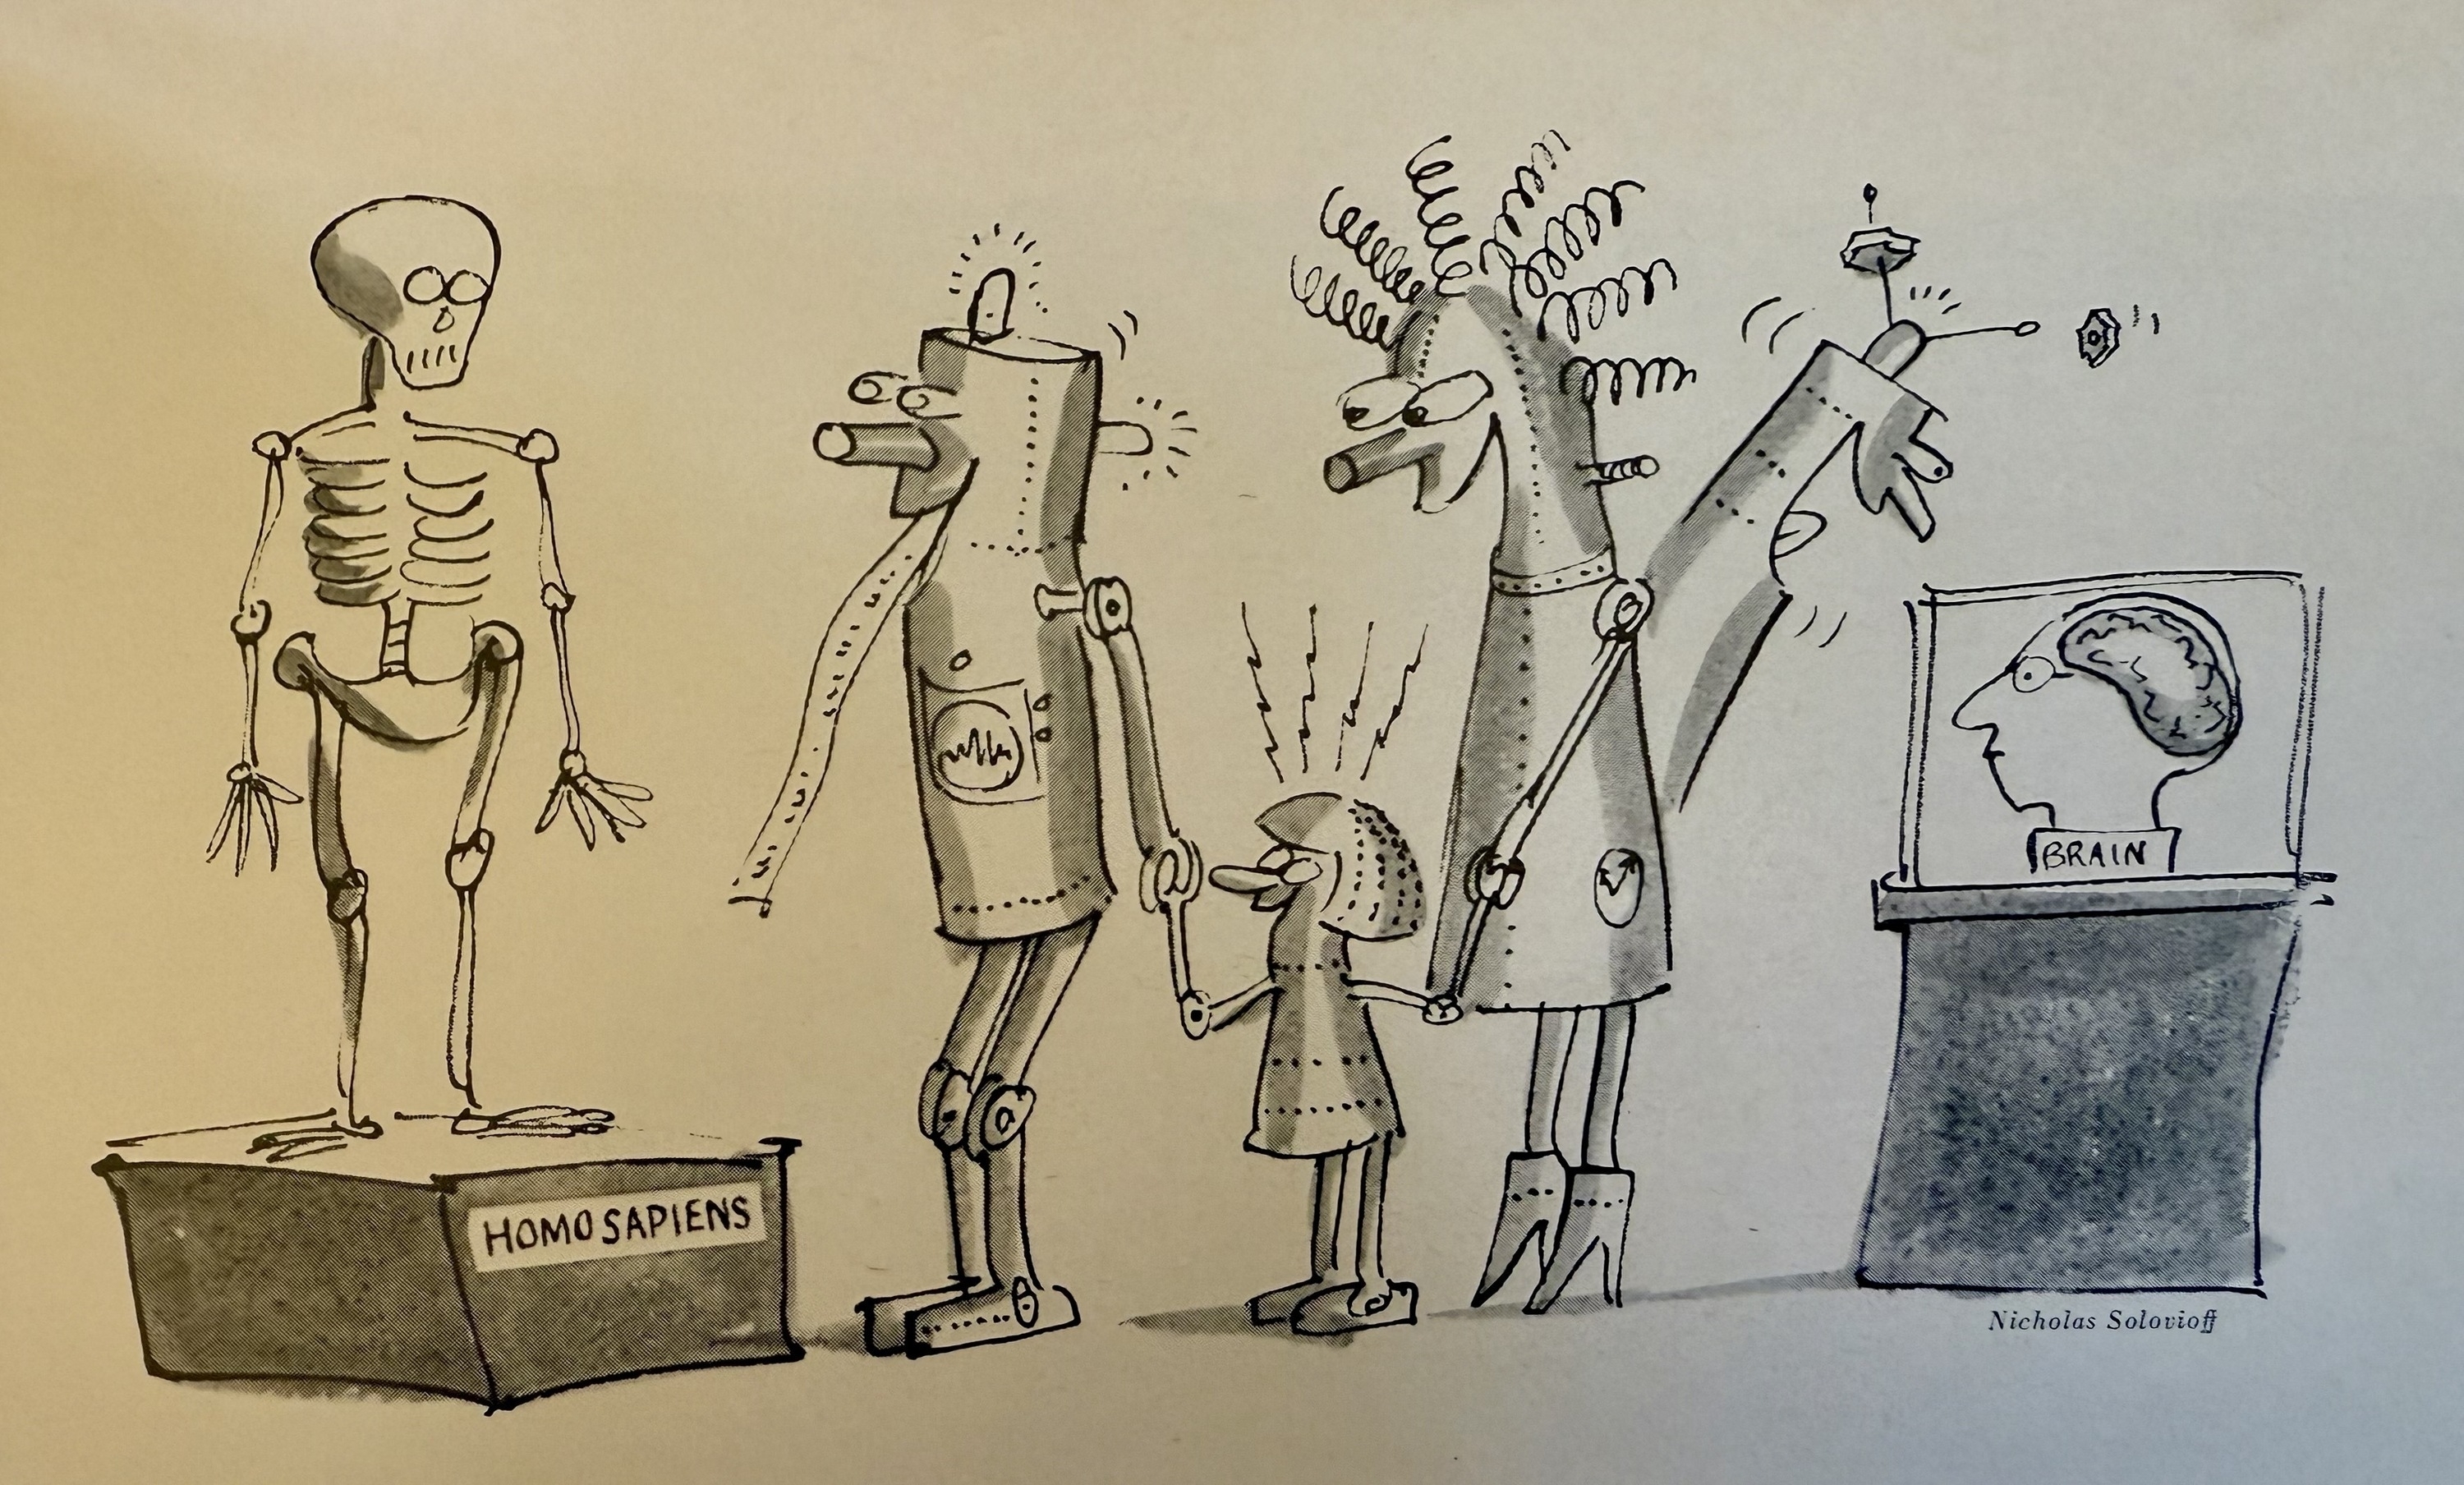 HOMO SAPIENS
BRAIN
Nicholas Solovioff